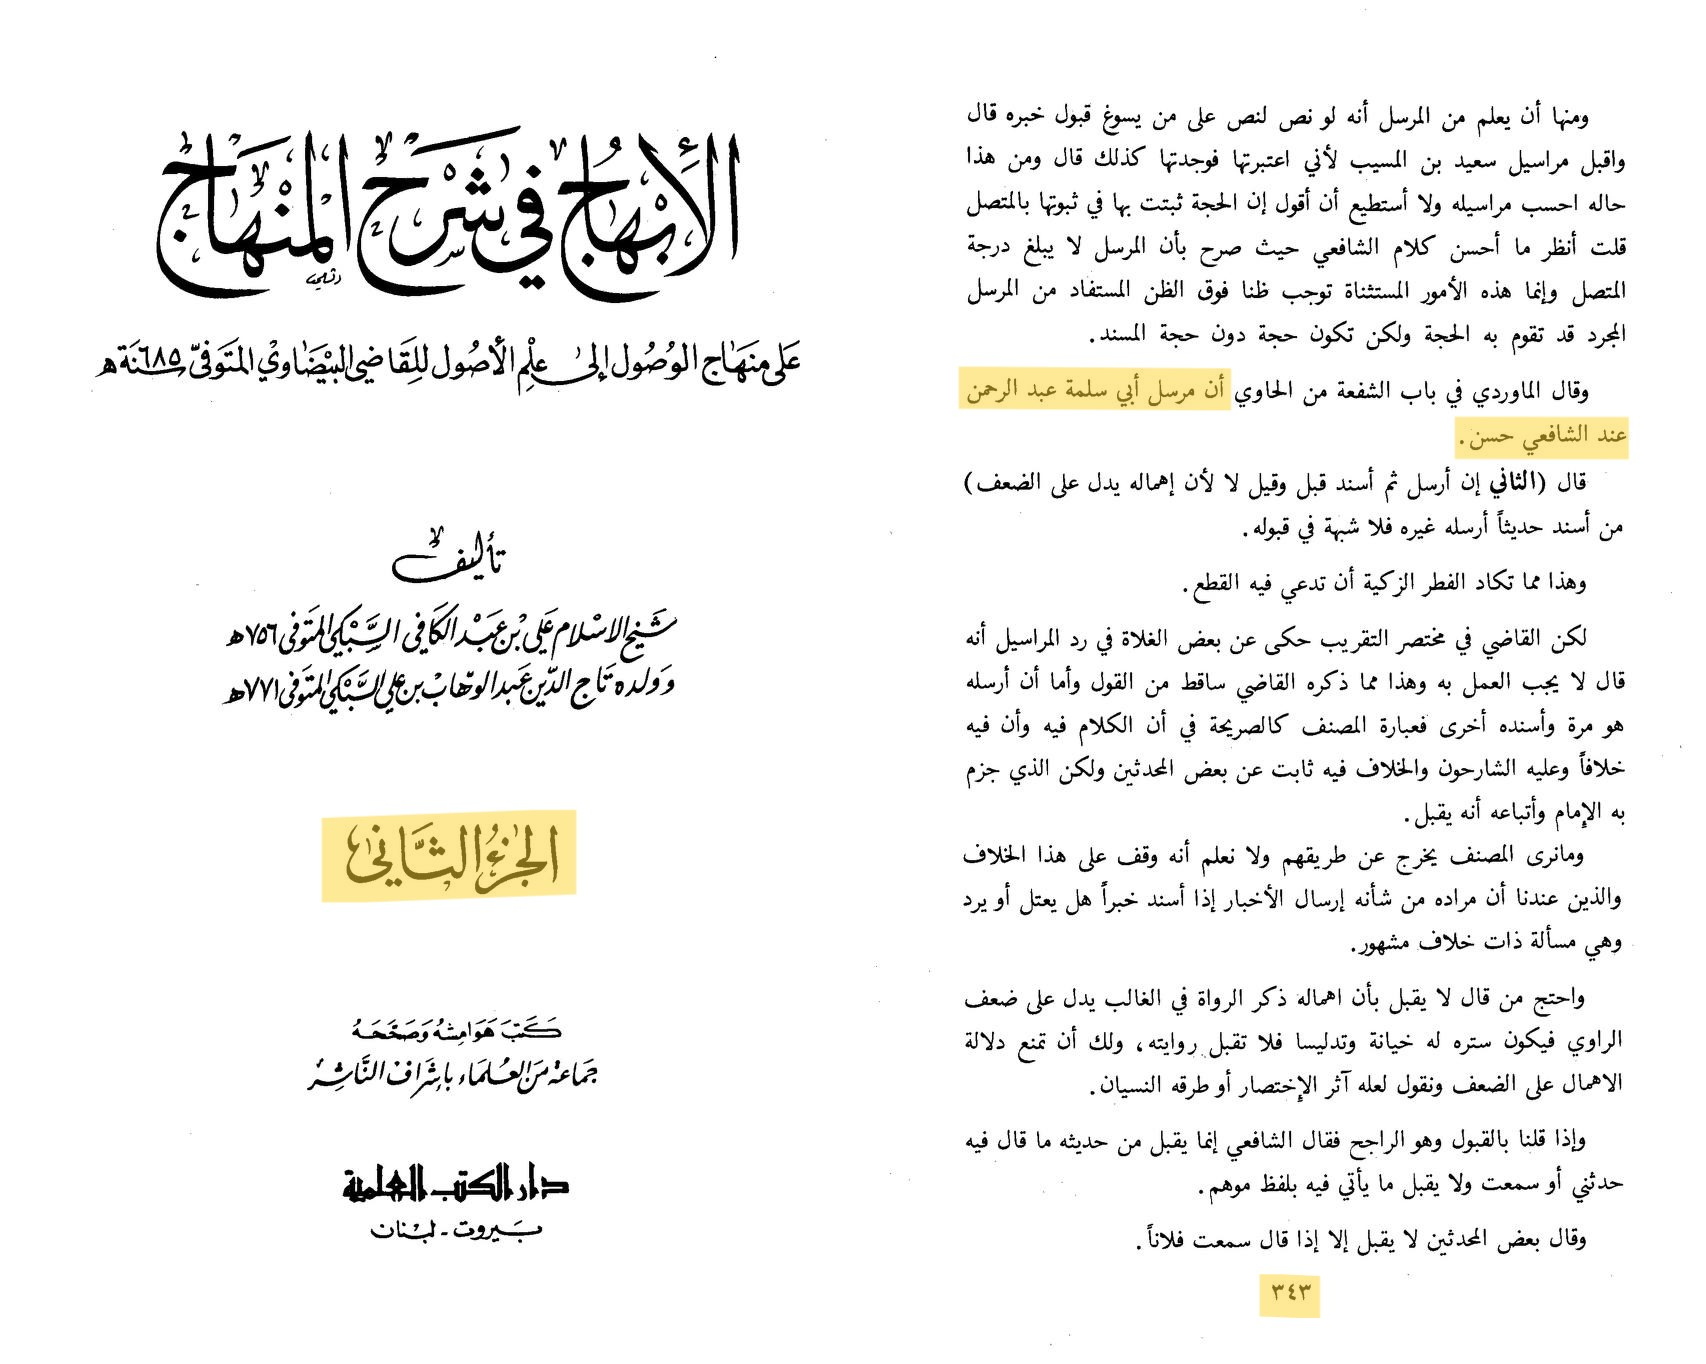 الإبهاج في شرح المنهاج
على منهاج الوصول إلى علم الأصول للقاضي البيضاوي المتوفى سنة ٦٨٥ هـ
تأليف
شيخ الإسلام علي بن عبد الكافي السبكي المتوفى ٧٥٦ هـ
وولده تاج الدين عبد الوهاب بن علي السبكي المتوفى ٧٧١ هـ
الجزء الثاني
كتب هوامشه وصححه
جماعة من العلماء بإشراف الناشر
دار الكتب العلمية
بيروت - لبنان
ومنها أن يعلم من المرسل أنه لو نص لنص على من يسوغ قبول خبره قال
واقبل مراسيل سعيد بن المسيب لأني اعتبرتها فوجدتها كذلك قال ومن هذا
حاله احسب مراسيله ولا أستطيع أن أقول إن الحجة ثبتت بها في ثبوتها بالمتصل
قلت أنظر ما أحسن كلام الشافعي حيث صرح بأن المرسل لا يبلغ درجة
المتصل وإنما هذه الأمور المستثناة توجب ظنا فوق الظن المستفاد من المرسل
المجرد قد تقوم به الحجة ولكن تكون حجة دون حجة المسند.
وقال الماوردي في باب الشفعة من الحاوي أن مرسل أبي سلمة عبد الرحمن
عند الشافعي حسن.
قال (الثاني إن أرسل ثم أسند قبل وقيل لا لأن إهماله يدل على الضعف)
من أسند حديثاً أرسله غيره فلا شبهة في قبوله.
وهذا مما تكاد الفطر الزكية أن تدعي فيه القطع.
لكن القاضي في مختصر التقريب حكى عن بعض الغلاة في رد المراسيل أنه
قال لا يجب العمل به وهذا مما ذكره القاضي ساقط من القول وأما أن أرسله
هو مرة وأسنده أخرى فعبارة المصنف كالصريحة في أن الكلام فيه وأن فيه
خلافاً وعليه الشارحون والخلاف فيه ثابت عن بعض المحدثين ولكن الذي جزم
به الإمام وأتباعه أنه يقبل.
ومانرى المصنف يخرج عن طريقهم ولا نعلم أنه وقف على هذا الخلاف
والذين عندنا أن مراده من شأنه إرسال الأخبار إذا أسند خبراً هل يعتل أو يرد
وهي مسألة ذات خلاف مشهور.
واحتج من قال لا يقبل بأن اهماله ذكر الرواة في الغالب يدل على ضعف
الراوي فيكون ستره له خيانة وتدليسا فلا تقبل روايته، ولك أن تمنع دلالة
الاهمال على الضعف ونقول لعله آثر الإختصار أو طرقه النسيان.
وإذا قلنا بالقبول وهو الراجح فقال الشافعي إنما يقبل من حديثه ما قال فيه
حدثني أو سمعت ولا يقبل ما يأتي فيه بلفظ موهم.
وقال بعض المحدثين لا يقبل إلا إذا قال سمعت فلاناً.
٣٤٣